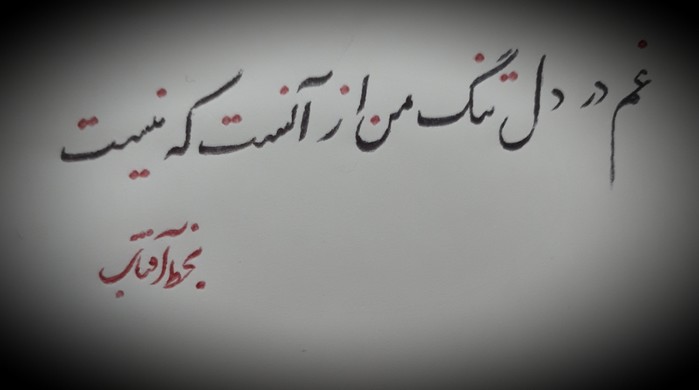 غم در دل تنگ من از آنست که نیست
بخط آفتاب